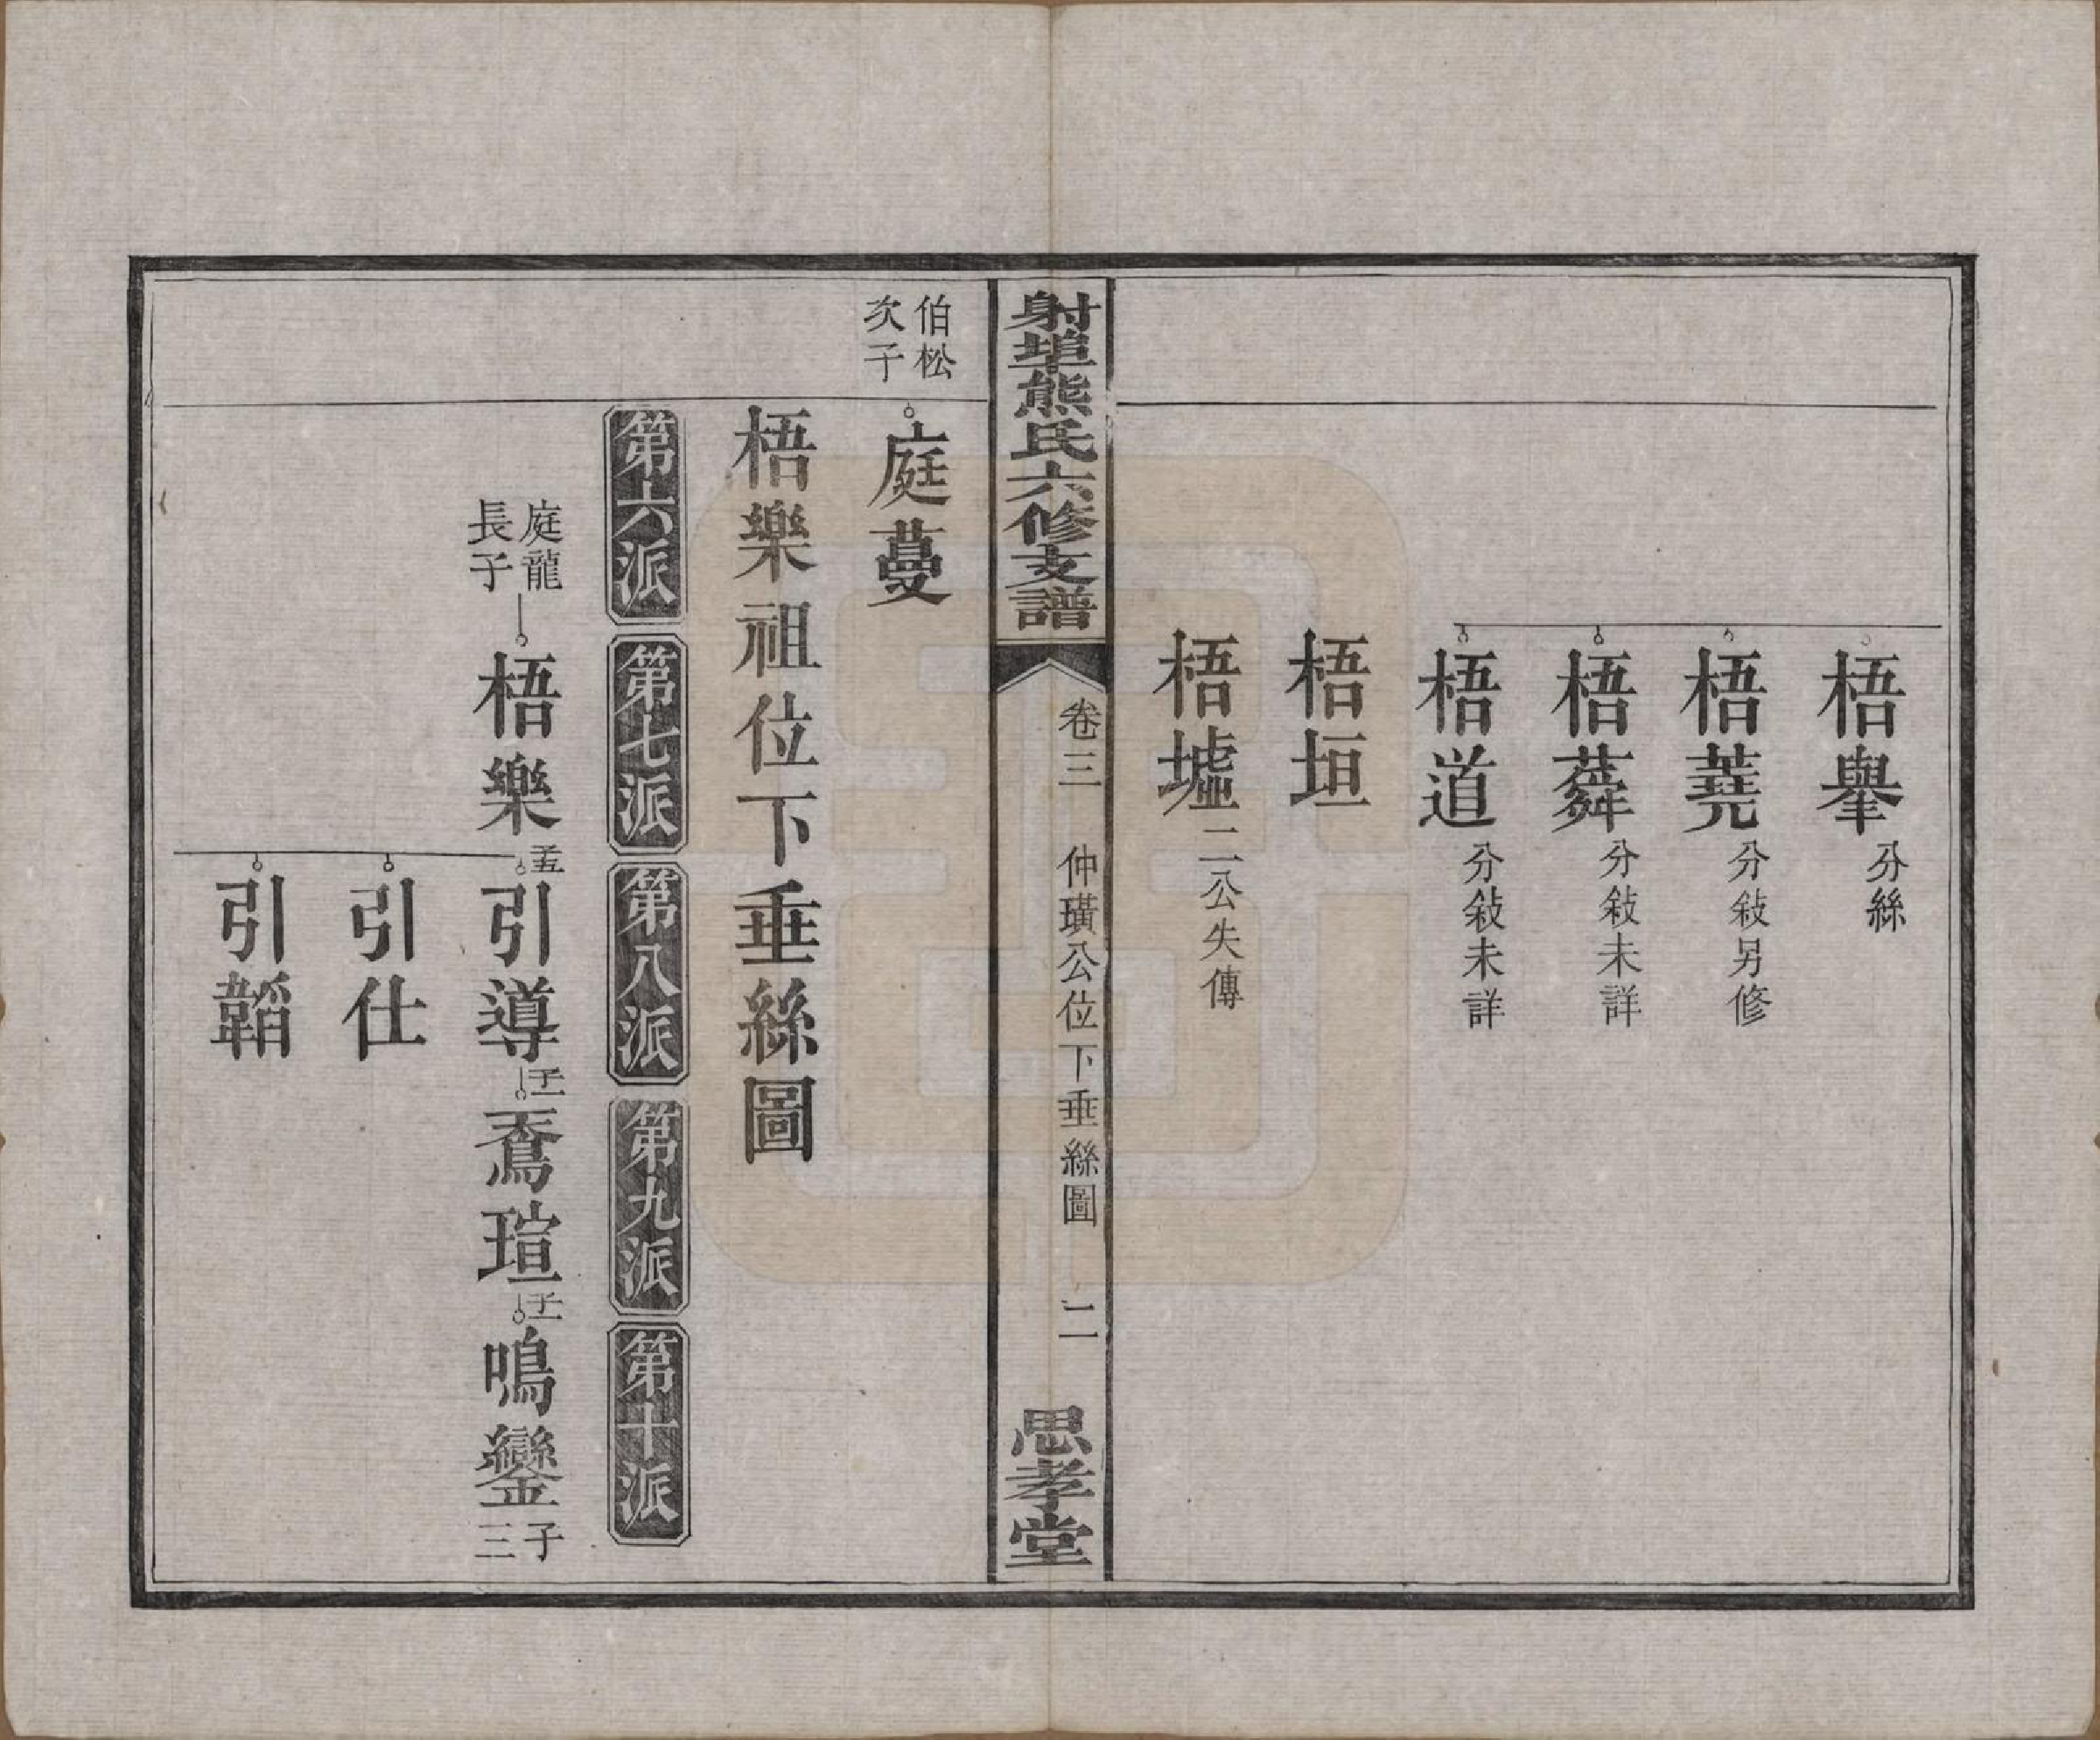 梧舉 分絲
梧蕘 分敍另修
梧蕣 分敍未詳
梧道 分敍未詳
梧垣
梧墟 二公失傳
射埠熊氏六修支譜 卷三 仲璜公位下垂絲圖 二 思孝堂
伯松次子 庭蔓
梧樂祖位下垂絲圖
第六派 第七派 第八派 第九派 第十派
庭龍長子 梧樂 子五 引導 子二 鴌瑄 子二 鳴鑾 子三
引仕
引韜